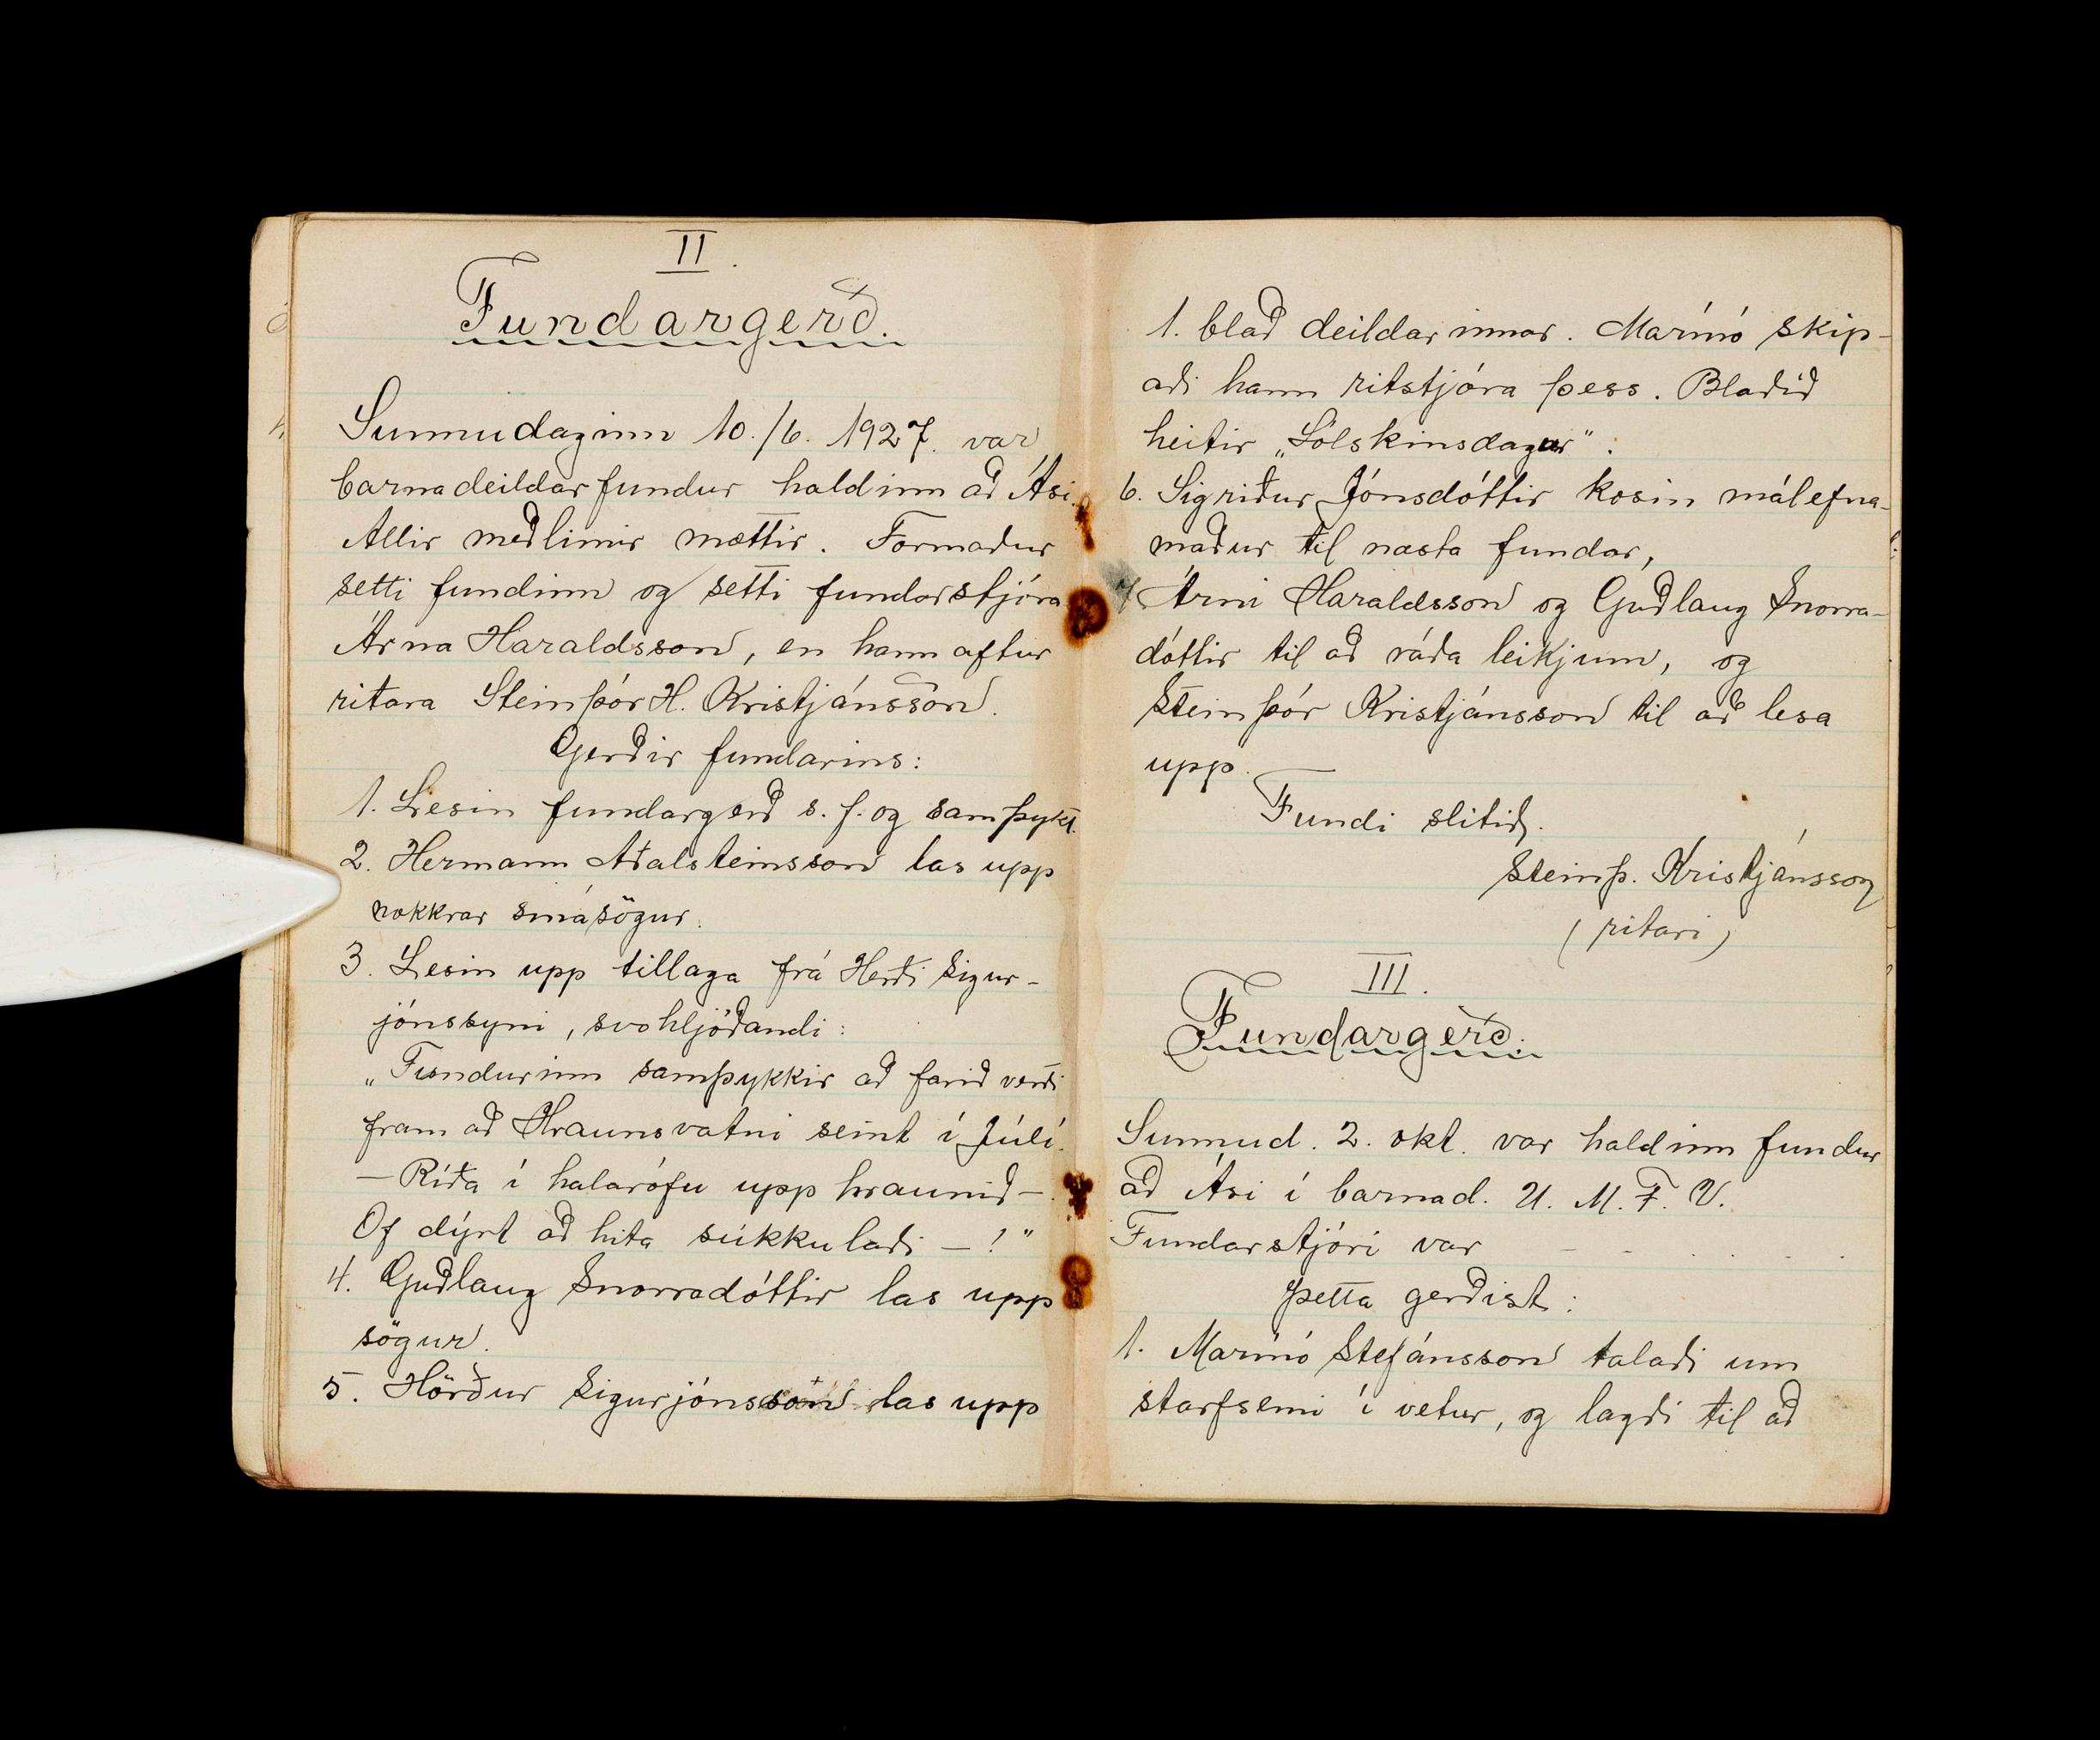 II.
Fundargerð.
Sunnudaginn 10./6. 1927. var
barnadeildarfundur haldinn að Ási.
Allir meðlimir mættir. Formaður
setti fundinn og setti fundarstjóra
Árna Haraldsson, en hann aftur
ritara Steinþór H. Kristjánsson.
Gerðir fundarins:
1. Lesin fundargerð s. f. og samþykt.
2. Hermann Aðalsteinsson las upp
nokkrar smásögur.
3. Lesin upp tillaga frá Herði Sigur-
jónssyni, svohljóðandi:
„Fundurinn samþykkir að farið verði
fram að Hraunsvatni seint í Júlí.
– Ríða í halarófu upp hraunið –.
Of dýrt að hita súkkulaði – !"
4. Guðlaug Snorradóttir las upp
sögur.
5. Hörður Sigurjónsson las upp
1. blað deildarinnar. Marinó skip-
aði hann ritstjóra þess. Blaðið
heitir „Sólskinsdagur".
6. Sigriður Jónsdóttir kosin málefna-
maður til næsta fundar,
7. Árni Haraldsson og Guðlaug Snorra-
dóttir til að ráða leikjum, og
Steinþór Kristjánsson til að lesa
upp.
Fundi slitið.
Steinþ. Kristjánsson
(ritari)
III.
Fundargerð.
Sunnud. 2. okt. var haldinn fundur
að Ási í barnad. U. M. F. V.
Fundarstjóri var - - . . . .
Þetta gerðist:
1. Marinó Stefánsson talaði um
starfsemi í vetur, og lagði til að